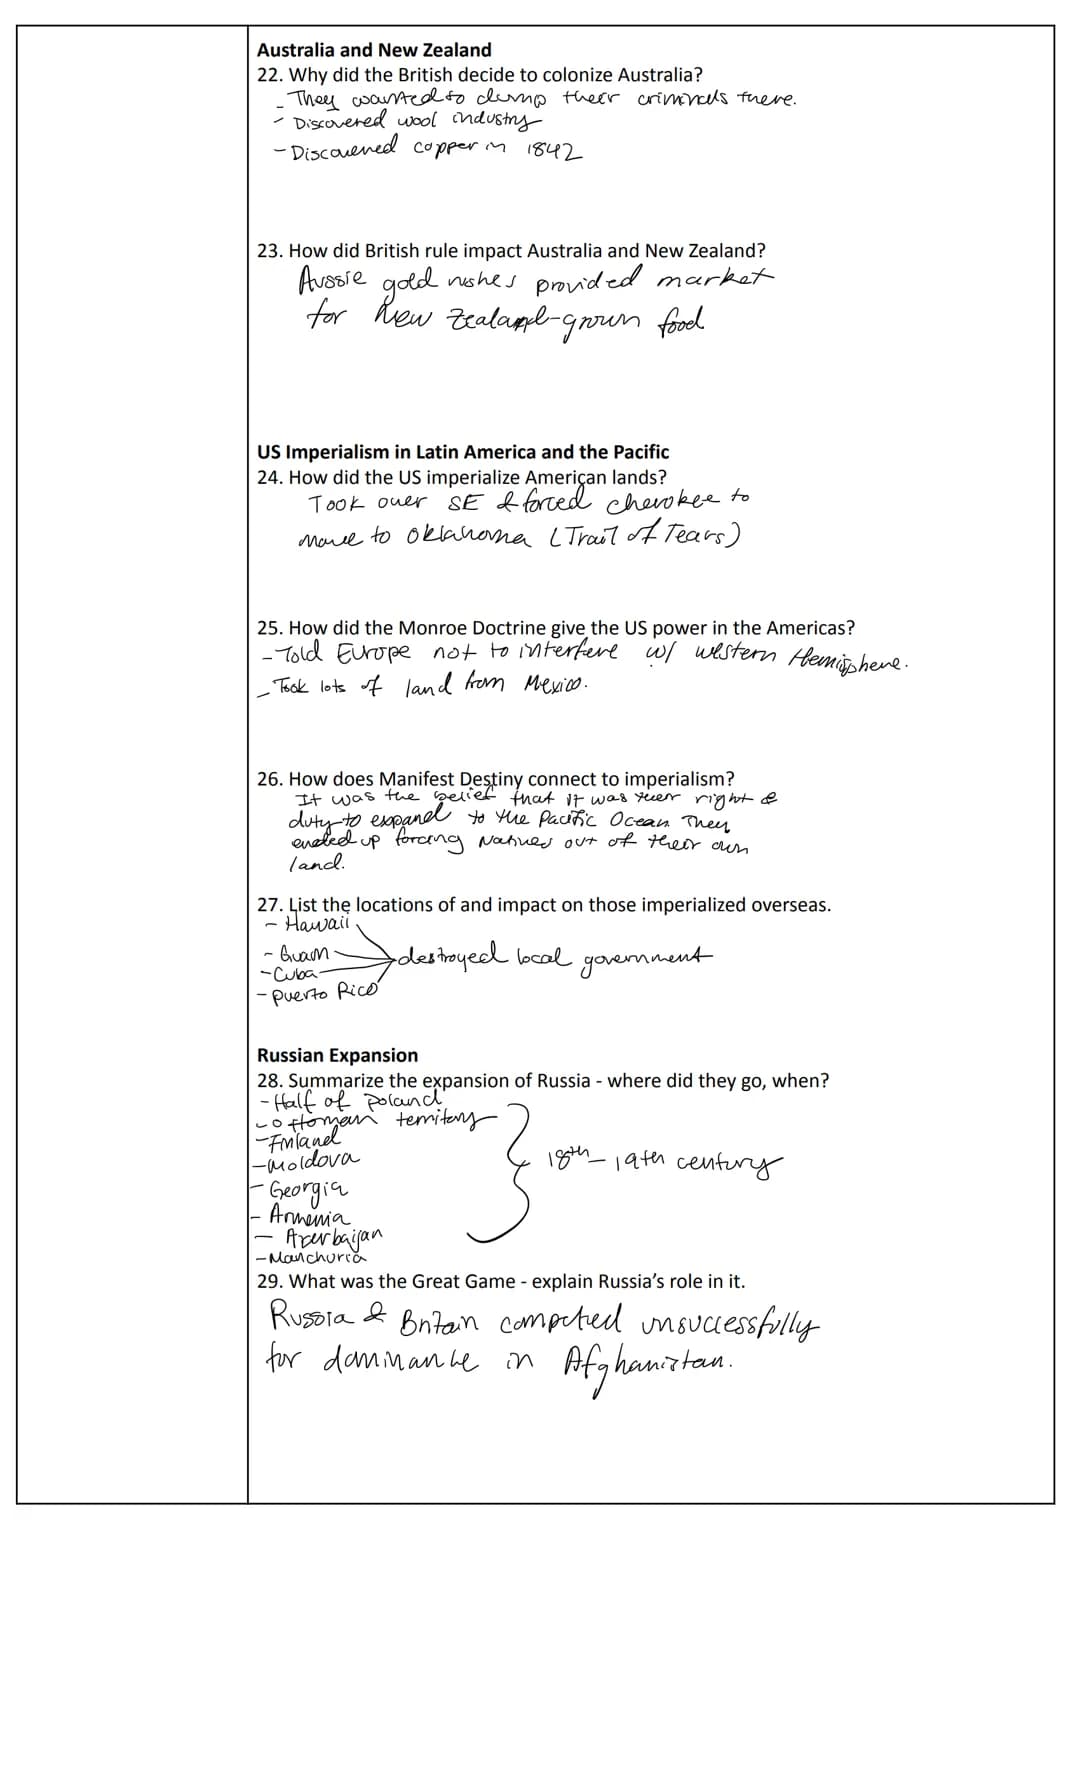 Australia and New Zealand
22. Why did the British decide to colonize Australia?
- They wanted to dump their criminals there.
- Discovered wool industry
- Discovered copper in 1842
23. How did British rule impact Australia and New Zealand?
Aussie gold rushes provided market
for New Zealand-grown food
US Imperialism in Latin America and the Pacific
24. How did the US imperialize American lands?
Took over SE & forced cherokee to
move to Oklahoma (Trail of Tears)
25. How did the Monroe Doctrine give the US power in the Americas?
- Told Europe not to interfere w/ western Hemisphere.
- Took lots of land from Mexico.
26. How does Manifest Destiny connect to imperialism?
It was the belief that it was their right &
duty to expand to the Pacific Ocean They
ended up forcing Natives out of their own
land.
27. List the locations of and impact on those imperialized overseas.
- Hawaii
- Guam
destroyed local government
- Cuba
- Puerto Rico
Russian Expansion
28. Summarize the expansion of Russia - where did they go, when?
- Half of Poland
- Ottoman territory
- Finland
- Moldova
18th - 19th century
- Georgia
- Armenia
- Azerbaijan
- Manchuria
29. What was the Great Game - explain Russia's role in it.
Russia & Britain competed unsuccessfully
for dominance in Afghanistan.